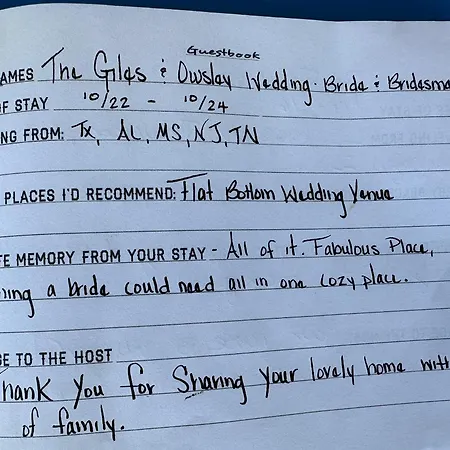 Guestbook
AMES The Giles & Owslay Wedding. Bride & Bridesma
OF STAY 10/22 - 10/24
NG FROM: TX, AL, MS, NJ, TN
PLACES I'D RECOMMEND: Flat Bottom Wedding Venue
TE MEMORY FROM YOUR STAY - All of it. Fabulous Place,
hing a bride could need all in one cozy place.
GE TO THE HOST
Thank You for Sharing your lovely home with
of family.